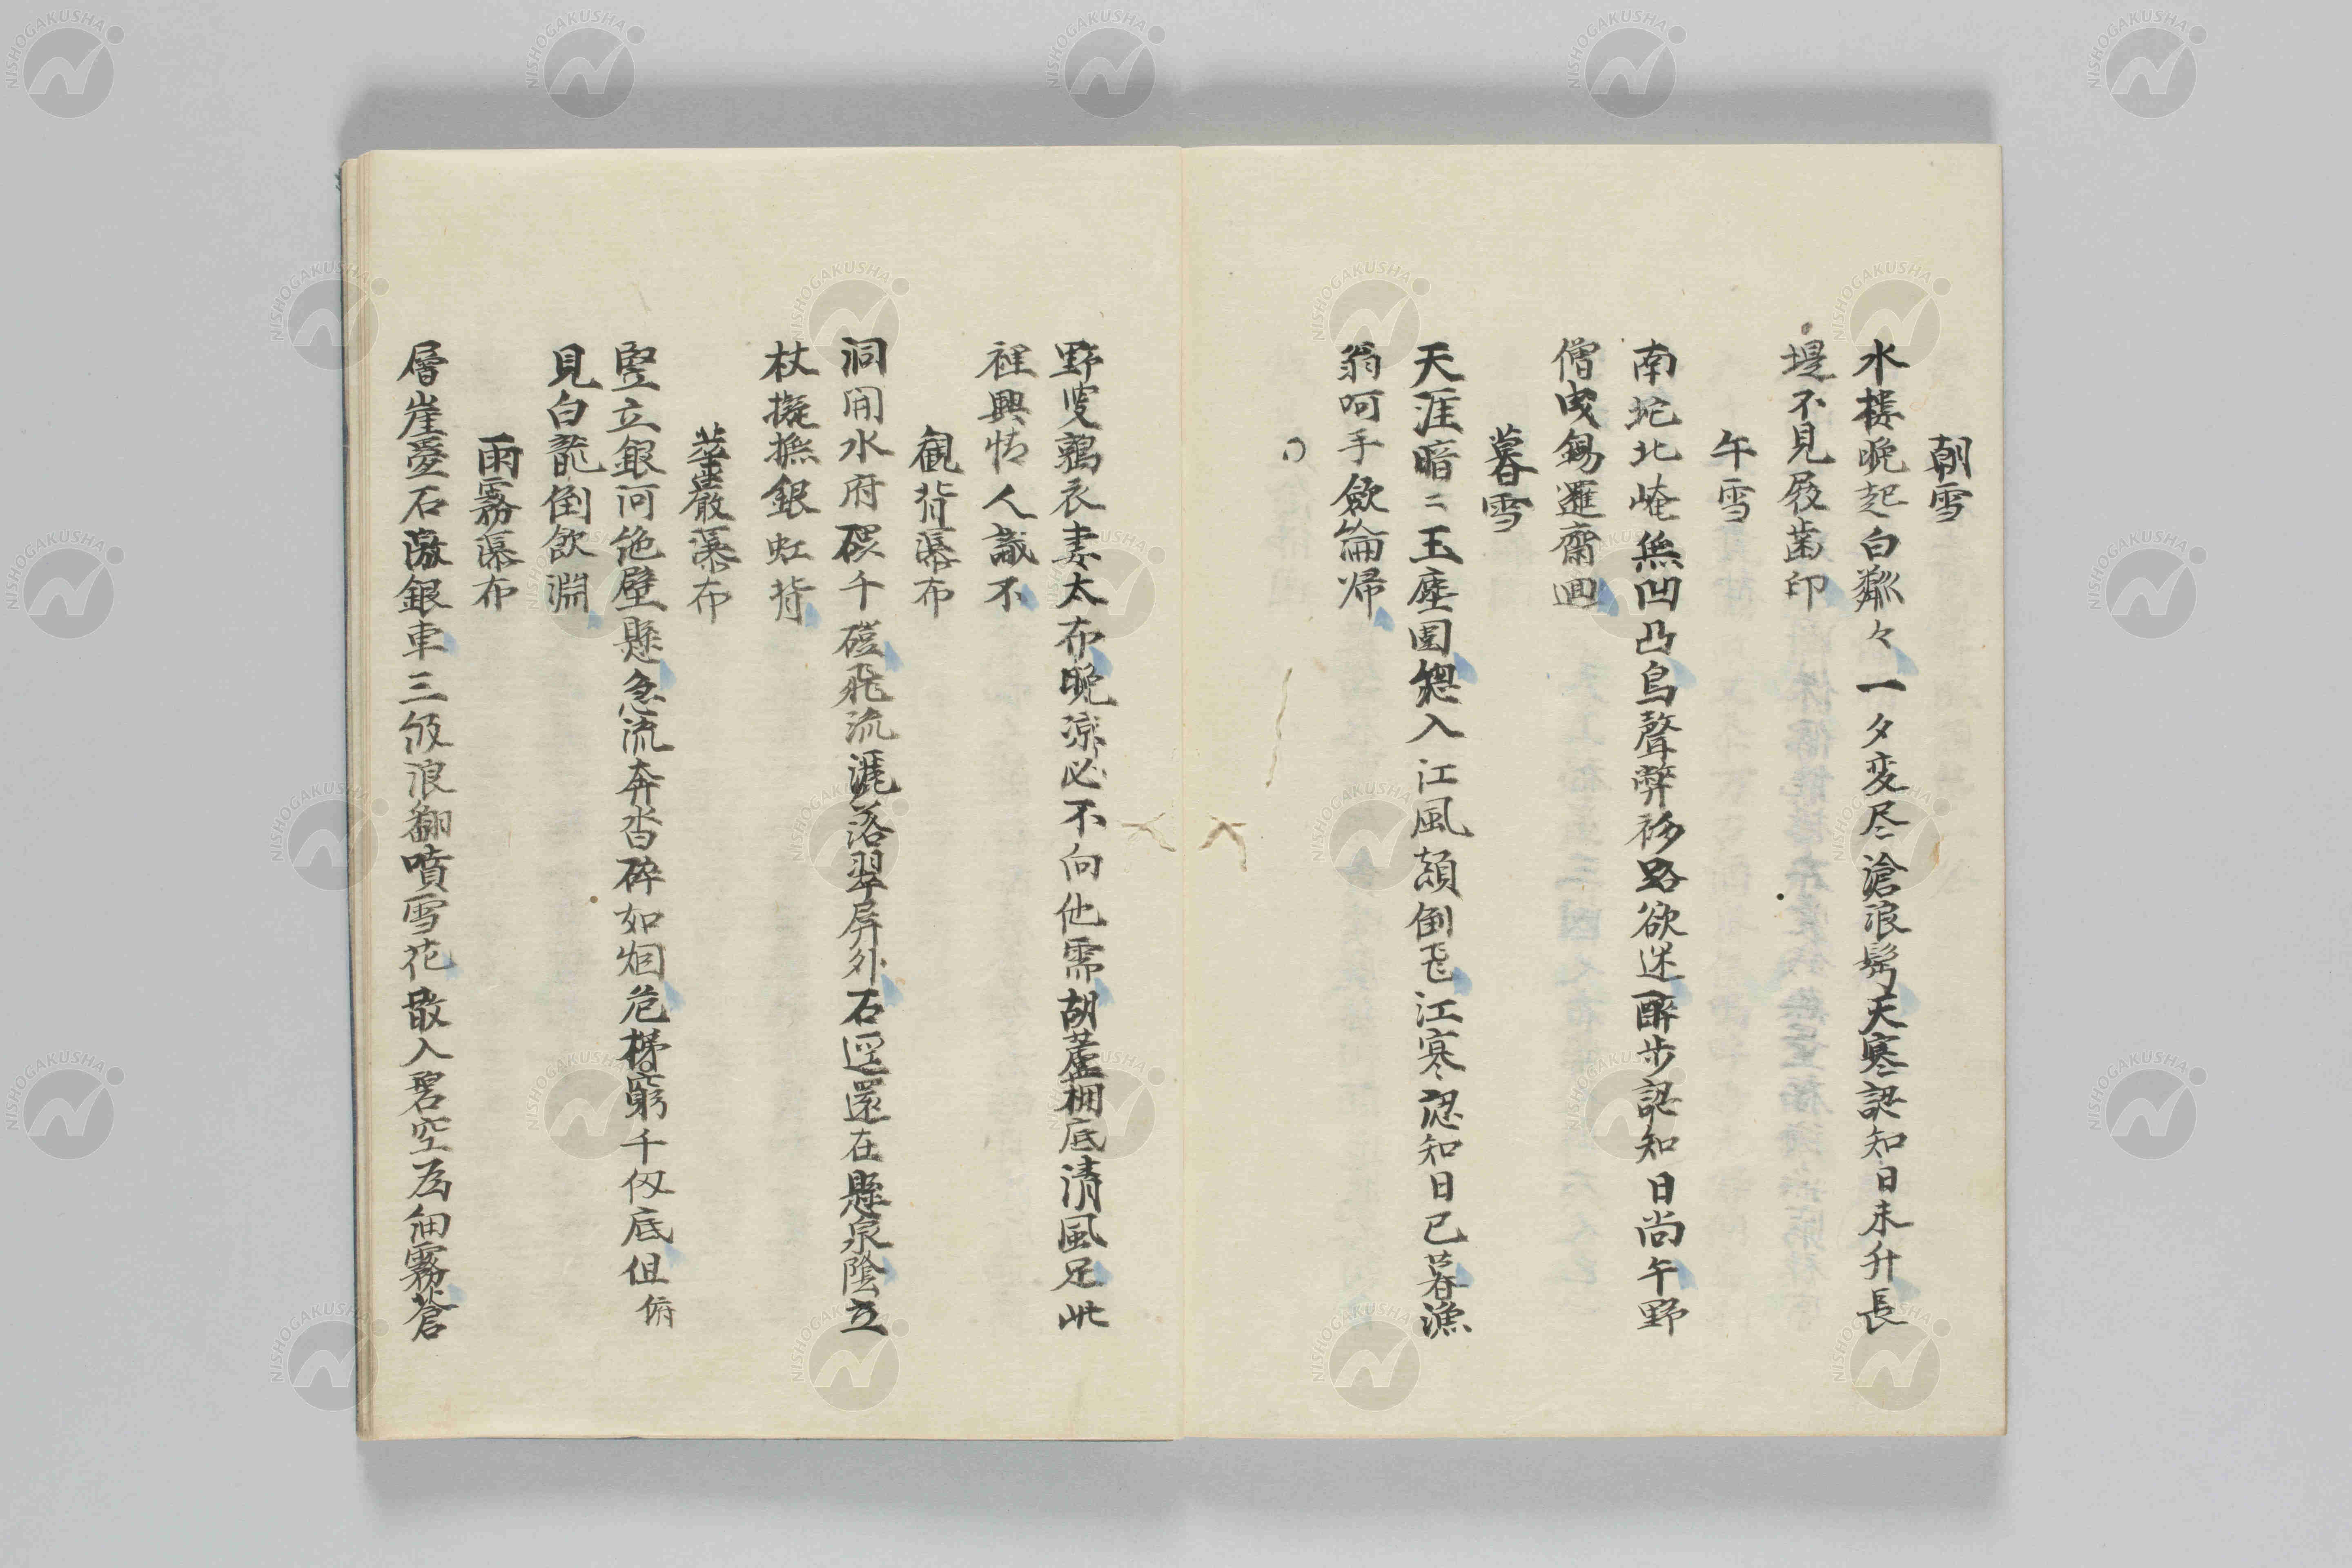 朝雪
水楼晩起白粼々一夕変尽滄浪髩天寒認知日未升長
堤不見屐歯印
午雪
南坨北崦無凹凸鳥聲弊衫路欲迷酔歩認知日尚午野
僧曳錫邏齋廻
暮雪
天涯暗〻玉塵囲緫入江風顛倒飛江寒認知日已暮漁
翁呵手歛綸帰
野叟鶉衣妻太布晩涼必不向他需胡蘆棚底清風足此
裡興情人識不
観背瀑布
洞開水府碶千磴飛流漉落翠屏外石逕還在懸泉陰立
杖擬撫銀虹背
華厳瀑布
竪立銀河絶壁懸急流奔沓砕如烟危梯窮千仭底但俯
見白龍倒飲淵
雨霧瀑布
層崖憂石激銀車三級浪翻噴雪花散入碧空為細霧蒼